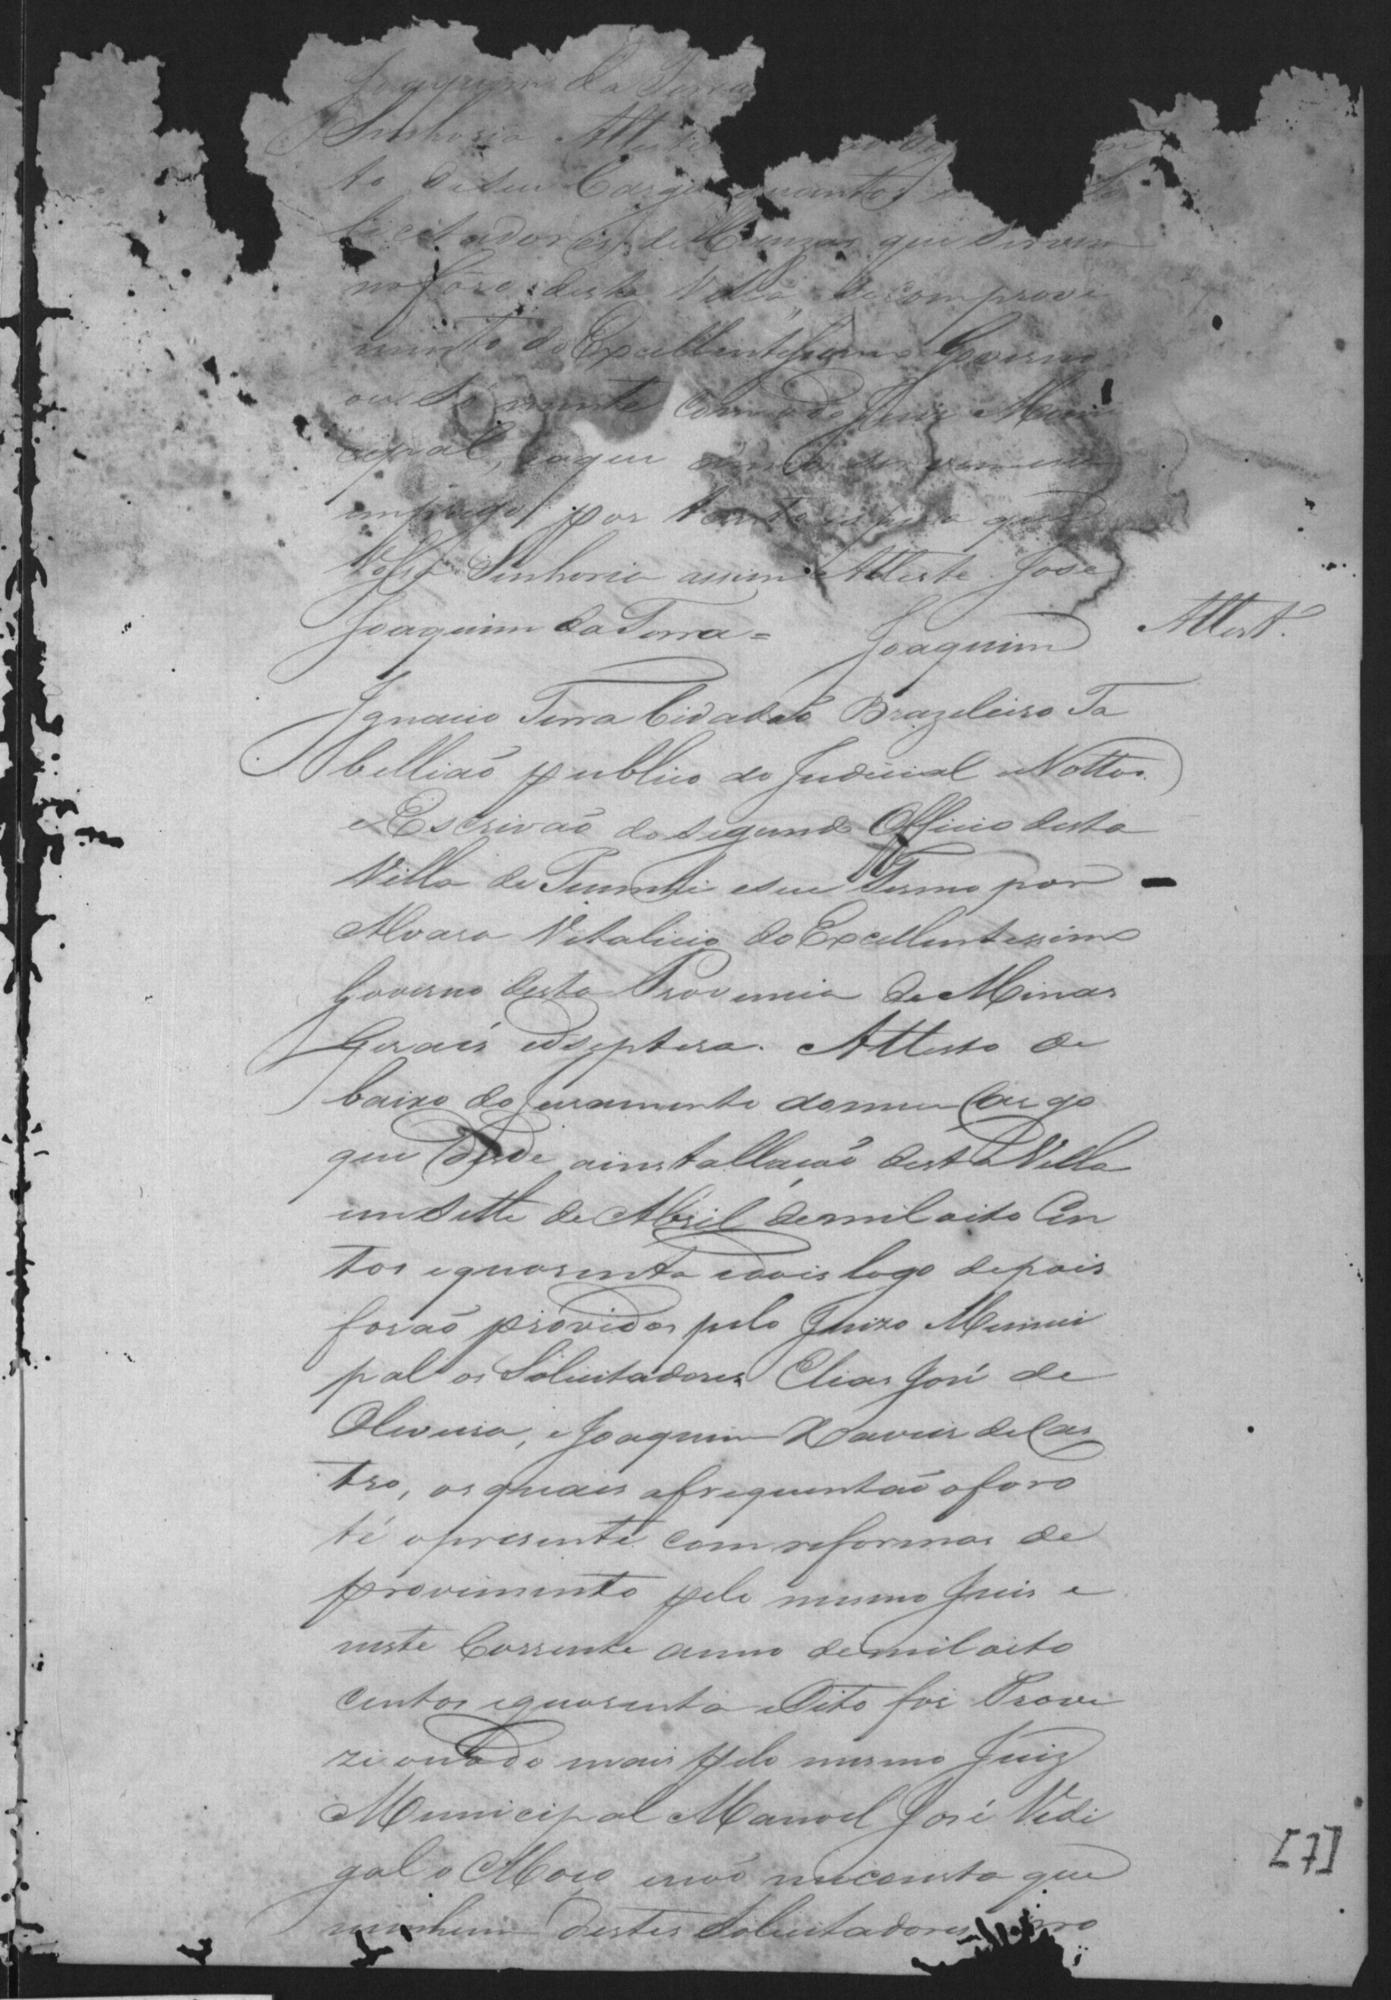 Joaquim da Terra
Senhoria Atteste
to de seu Cargo quantos
licitadores de Cauzas que servem
no fôro desta Villa, se com provi
mento do Excellentissimo Governo
ou sómente com o do Juiz Muni
cipal, e a que tempo servem esse
emprego, por tanto espera que
Vossa Senhoria assim Atteste José
Joaquim da Terra = Joaquim
Attest.º
Ignacio Terra Cidadaõ Brazileiro Ta
belliaõ publico do Judicial e Nottas
e Escrivaõ do segundo Officio desta
Villa de Piumhi e seu Termo por
Alvara Vitalicio do Excellentissimo
Governo desta Provincia de Minas
Geraes edseptera. Attesto de
baixo do juramento do meu Cargo
que desde a installaçaõ desta Villa
em sette de Abril de mil oito Cen
tos e quarenta e dois logo depois
foraõ próvidos pelo Juizo Munici
pal os Solicitadores Elias José de
Oliveira, e Joaquim Xavier de Cas
tro, os quais afrequentaõ o foro
té o presente com reformas de
provimento pelo mesmo Juis e
neste Corrente anno de mil oito
centos e quarenta e Oito foi Provi
zionado mais pelo mesmo Juiz
Municipal Manoel José Vidi
gal o Moço enaõ me consta que
nenhum destes Solicitadores
[7]